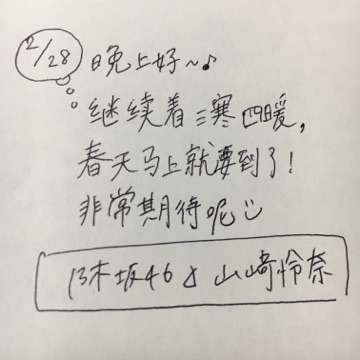 2/28
晚上好～♪
继续着三寒四暖，
春天马上就要到了！
非常期待呢
乃木坂46 山崎怜奈